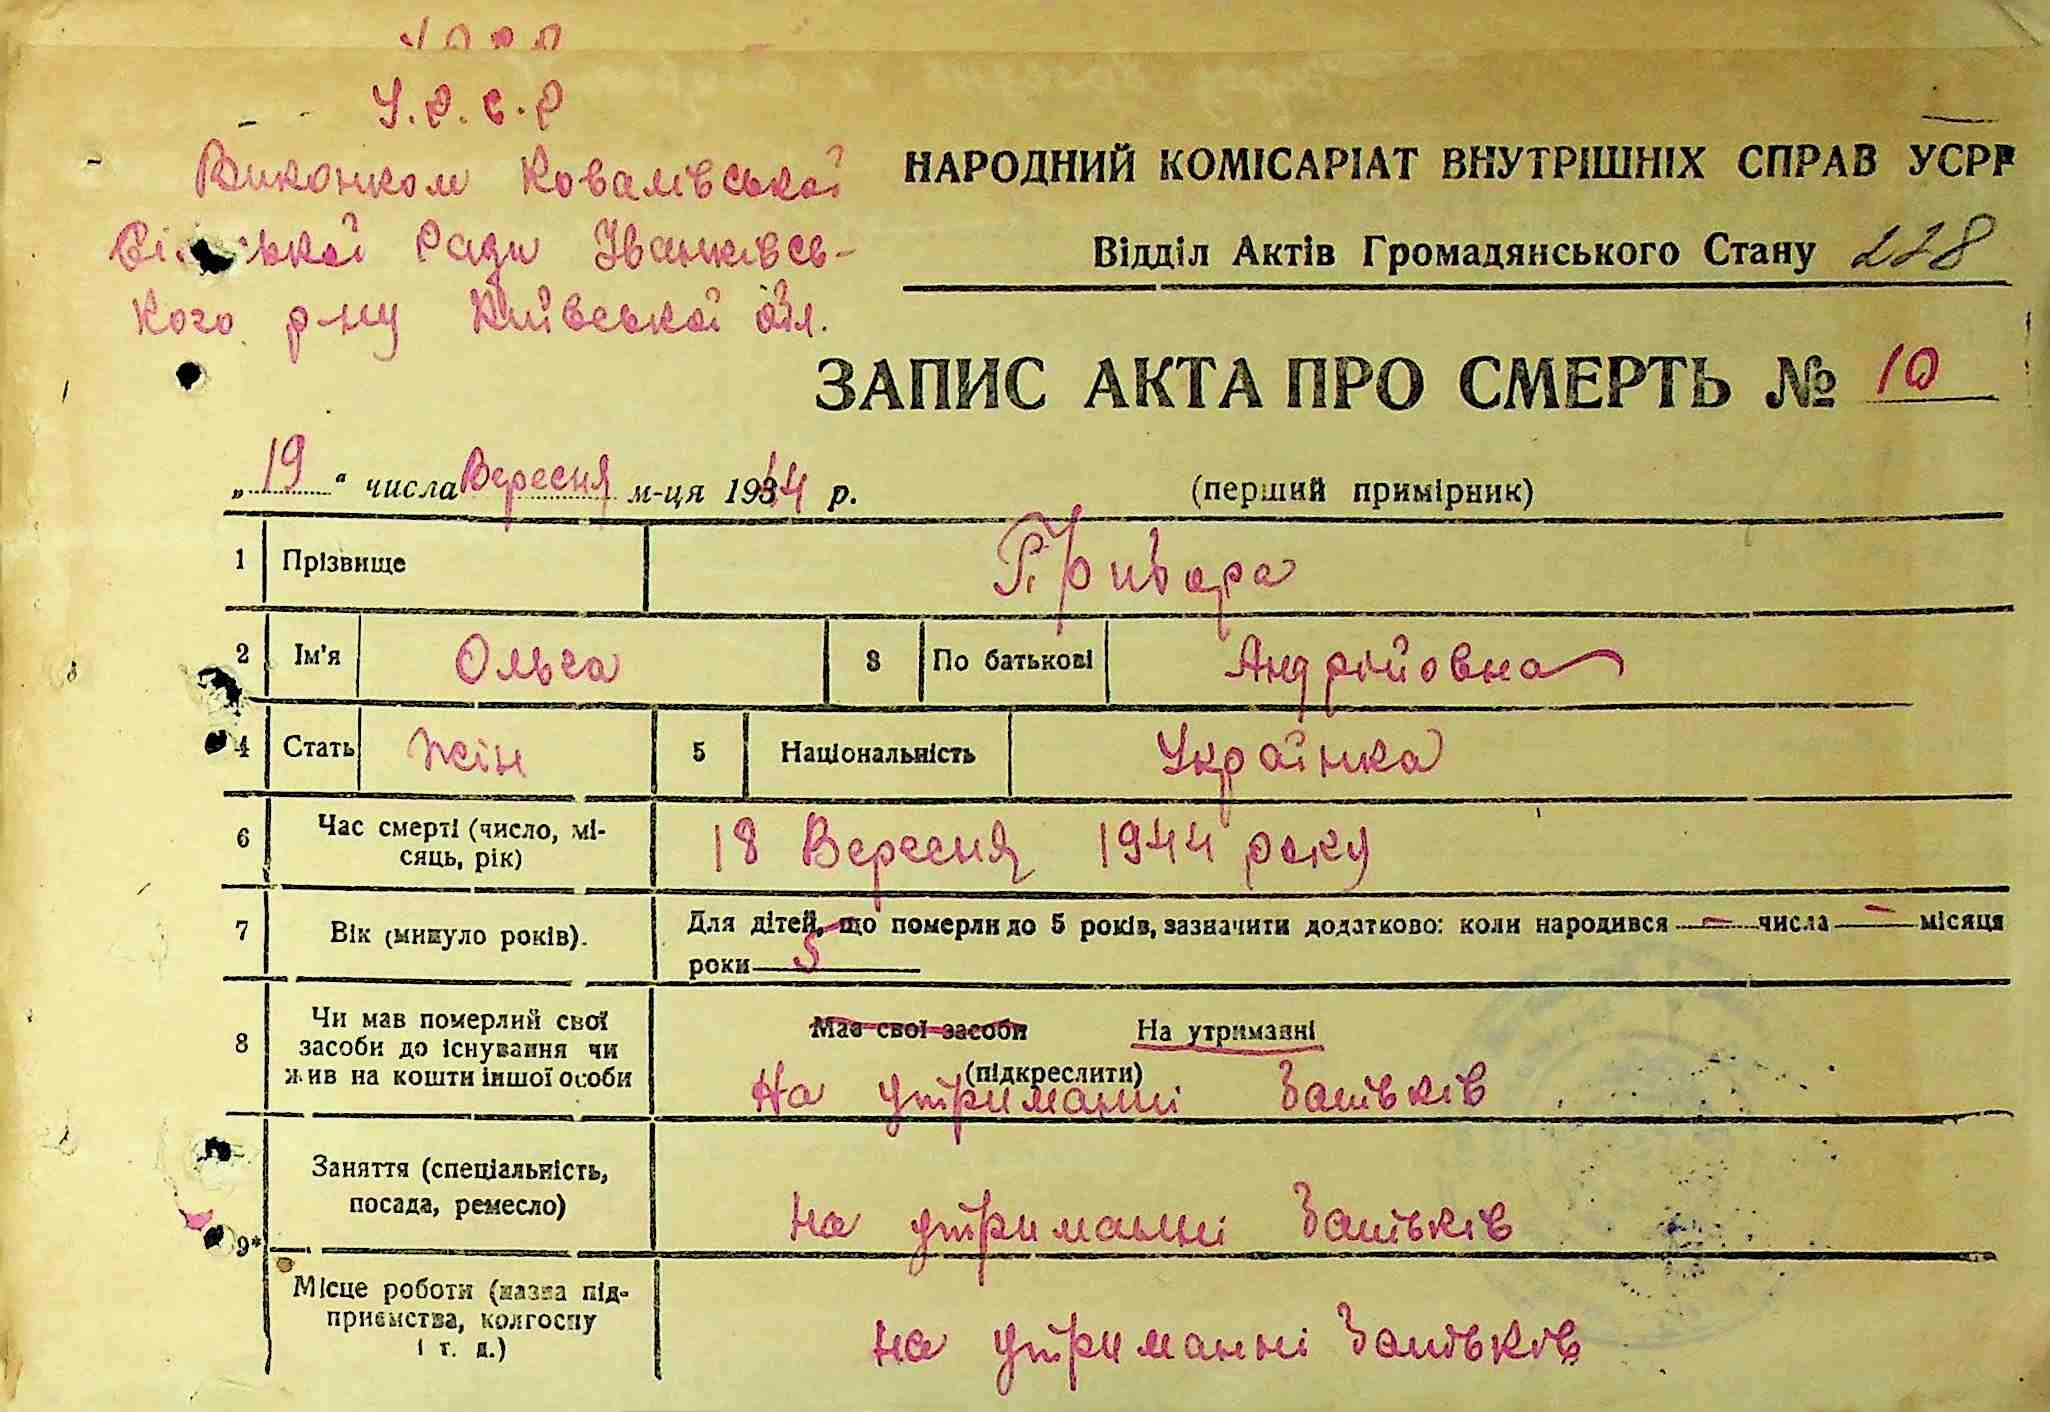 У.Р.С.Р
Виконком Ковалівської
ської Ради Іванківсь-
кого р-ну Київської обл.
НАРОДНИЙ КОМІСАРІАТ ВНУТРІШНІХ СПРАВ УСРР
Відділ Актів Громадянського Стану 228
ЗАПИС АКТА ПРО СМЕРТЬ № 10
„19“ числа Вересня м-ця 1944 р.
(перший примірник)
1 Прізвище
2 Ім'я Ольга 3 По батькові Андрійовна
4 Стать жін 5 Національність Українка
6 Час смерті (число, мі-
сяць, рік)
18 Вересня 1944 року
7 Вік (минуло років).
Для дітей, що померли до 5 років, зазначити додатково: коли народився — числа — місяця
роки 5
8 Чи мав померлий свої
засоби до існування чи
жив на кошти іншої особи
Має свої засоби На утриманні
(підкреслити)
На утриманні батьків
Заняття (спеціальність,
посада, ремесло)
на утриманні батьків
9*
Місце роботи (назва під-
приємства, колгоспу
і т. д.)
на утриманні батьків